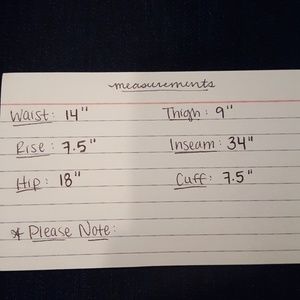 measurements
Waist: 14" Thigh: 9"
Rise: 7.5" Inseam: 34"
Hip: 18" Cuff: 7.5"
* Please Note: